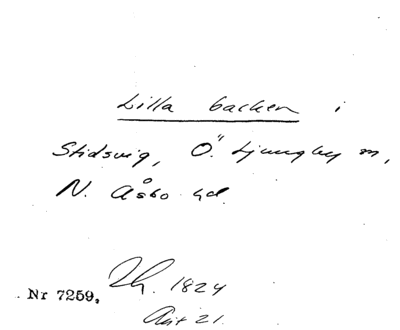 Lilla backen i
Stidsvig, Ö. Ljungby sn,
N. Åsbo hd.
Lh. 1824
Nr 7259,
Akt 21.